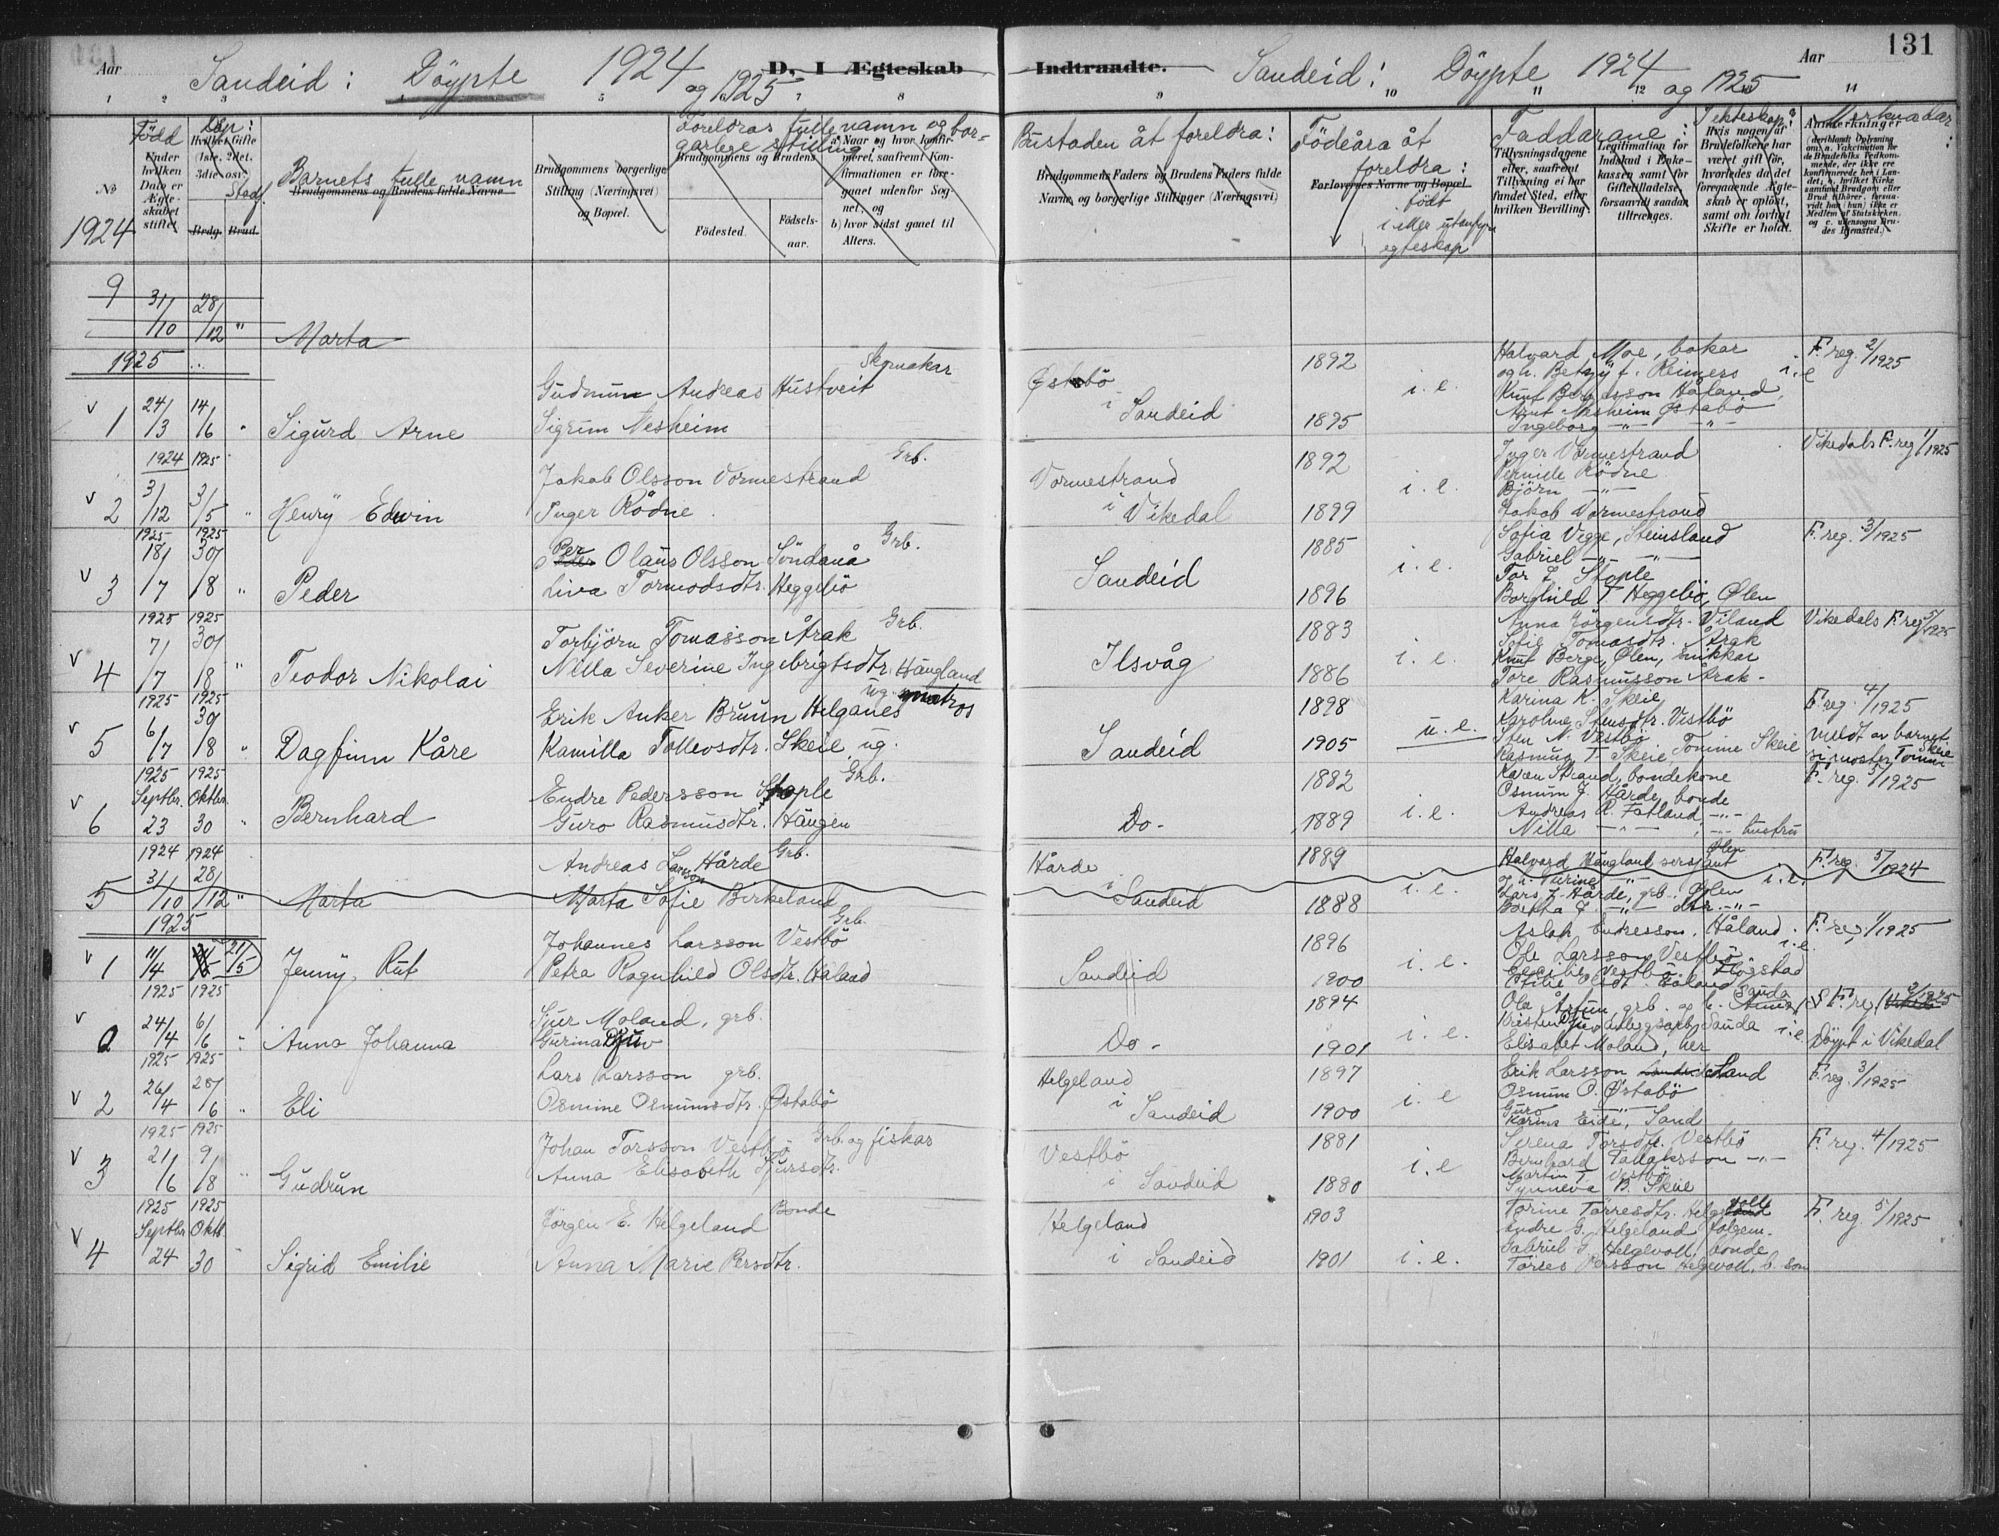 131
Sandeid: Döypte 1924 og 1925
Aar
D. I Ægteskab Indtraadte.
Sandeid: Döypte 1924 og 1925
Aar
1 2 3 5 7 8 9 10 11 12 14
№
1924
Född
Under hvilken Dato er Ægteskabet stiftet.
Döp:
Hvilket Gifte (1ste, 2det, 3die osv.
Stad
Brdg. Brud.
Barnets fulle namn
Brudgommens og Brudens fulde Navne
Brudgommens borgerlige Stilling (Næringsvei) og Bopæl.
Foreldras fulle namn og borgarlege stilling
Brudgommens og Brudens
Födested.
Födselsaar.
a) Naar og hvor konfirmeret, saafremt Konfirmationen er foregaaet udenfor Sognet, og
b) hvor sidst gaaet til Alters.
Bustaden åt foreldra:
Brudgommens Faders og Brudens Faders fulde Navne og borgerlige Stillinger (Næringsvei)
Födeåra åt foreldra:
Forlovernes Navne og Bopæl.
födt i eller utanfyre egteskap
Faddarane:
Tillysningsdagene eller, saafremt Tillysning ei har fundet Sted, efter hvilken Bevilling.
Legitimation for Indskud i Enkekassen samt for Giftetilladelse, forsaavidt saadan tiltrænges.
Hvis nogen af Brudefolkene har været gift før, hvorledes da det foregaaende Ægteskab er opløst, samt om lovligt Skifte er holdt.
Merknadar:
Anmerkninger
9 31/10 28/12 " Marta
1925
v 1 24/3 14/6 " Sigurd Arne
Gudmun Andreas Hustveit Skomakar
Sigrun Nesheim
Østabö i Sandeid
1892
1895
i. e.
Halvard Moe, bakar
og h. Betzy f. Reimers i. e
Håland,
Knut Nesheim Østabö
Ingeborg —"— —"—
F. reg. 2/1925
1924 1925
v 2 3/12 3/5 " Henry Edvin
Jakob Olsson Vormestrand Grb.
Inger Rödne
Vormestrand i Vikedal
1892
1899
i. e.
Inger Vormestrand
Rödne
Björn —"—
Jakob Vormestrand
Vikedals F. reg 1/1925
1925 1925
v 3 18/7 30/8 " Peder
Per Olaus Olsson Söndanå Grb.
Liva Tormodsdtr. Heggebö
Sandeid
1885
1896
i. e.
Sofia Vegge, Steinsland
Gabriel —"— —"—
Tor L Stople
Borghild T Heggebö, Ølen
F. reg. 3/1925
1925 1925
v 4 7/7 30/8 " Teodor Nikolai
Torbjörn Tomasson Årak Grb.
Nilla Severine Ingebrigtsdtr. Hängland
Ilsvåg
1883
1886
i. e.
Anna Jörgensdtr. Viland
Sofie Tomasdtr. Årak
Knut Berge, Ølen, snikkar
Tore Rasmusson Årak-
Vikedals F. reg 5/1925
1925 1925
v 5 6/7 30/8 " Dagfinn Kåre
Erik Anker Bruun Helganes ug. matros
Kamilla Tollevsdtr. Skeie, ug.
Sandeid
1898
1905
u. e.
Karina K. Skeie
Karoline Stensdtr. Vestbö
Sten N. Vestbö
Rasmus T Skeie, Tomine Skeie
F. reg. 4/1925
meldt av barnet
si moster Tomine Skeie
1925 1925
v 6 Septbr. 23 Oktbr. 30 " Bernhard
Endre Pedersson Stople Grb.
Guro Rasmusdtr. Hängen
Do-
1882
1889
i. e.
Karen Strand, bondekone
Osmum J. Hårde, bonde
Andreas R. Fatland, —"—
Nilla —"— —"— hustru
F. reg. 5/1925
1924 1924
5 31/10 28/12 " Marta
Andreas Larsson Hårde Grb.
Marta Sofie Birkeland
Hårde i Sandeid
1889
1888
i. e.
Halvard Hängland, sersjant Ølen
Lars J. Hårde, grb. Ølen i. e.
Bertha J —"— dtr. —"—
F. reg. 5/1924
1925
v 1 11/4 21/5 Jenny Rut
Johannes Larsson Vestbö Grb.
Petra Ragnhild Olsdtr. Håland
Sandeid
1896
1900
i. e.
Aslak Endresson, Håland. i. e.
Ole Larsson Vestbö
F. reg 1/1925
1925 1925
v 2 24/4 6/6 " Anna Johanna
Sjur Moland, grb.
Gurina
Do-
1894
1901
i. e.
Elisabet Moland, her
Döypt i Vikedal
1925 1925
v 2 26/4 28/6 " Eli
Lars Larsson grb.
Osmine Osmunsdtr. Østabö
Helgeland i Sandeid
1897
1900
i. e
Erik Larsson Sand
Osmum O. Østabö
Guro —"—
Karina Eide, Sand
F. reg. 3/1925
1925 1925
v 3 21/6 9/8 " Gudrun
Johan Torsson Vestbö Grb. og fiskar
Anna Elisabeth Sjursdtr.
Vestbö i Sandeid
1881
1880
i. e
Serena Torsdtr. Vestbö
Bernhard Tollaksson —"—
Martin T Vestbö
Synneva B. Skeie
F. reg. 4/1925
1925 1925
v 4 Septbr. 24 Oktb. 30 " Sigrid Emilie
Jörgen E. Helgeland Bonde
Anna Marie Persdtr.
Helgeland i Sandeid
1903
1901
i. e.
Torine Torresdtr. Helgevoll
Endre G. Helgeland folgem.
Gabriel G. Helgevoll, bonde
Torres Persson Helgevoll, b. son
F. reg. 5/1925